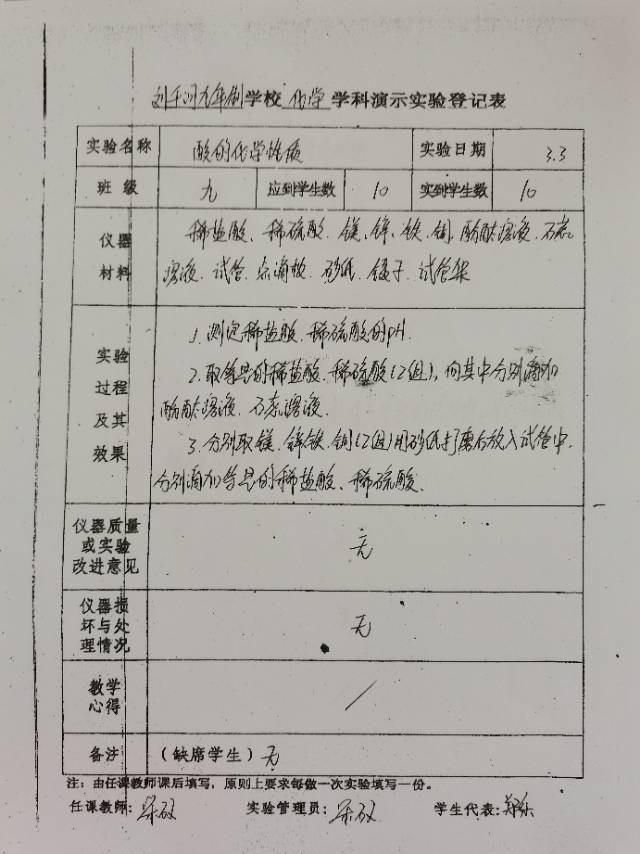 刘千河九年制学校 化学 学科演示实验登记表
实验名称 酸的化学性质 实验日期 3.3
班级 九 应到学生数 10 实到学生数 10
仪器材料 稀盐酸、稀硫酸、镁、锌、铁、铜、酚酞溶液、石蕊
溶液、试管、点滴板、砂纸、镊子、试管架
实验过程及其效果 1.测定稀盐酸、稀硫酸的pH.
2.取等量的稀盐酸、稀硫酸(2组),向其中分别滴加
酚酞溶液、石蕊溶液.
3.分别取镁、锌铁、铜(2组)用砂纸打磨后放入试管中,
分别滴加等量的稀盐酸、稀硫酸.
仪器质量或实验改进意见 无
仪器损坏与处理情况 无
教学心得 /
备注 (缺席学生) 无
注:由任课教师课后填写,原则上要求每做一次实验填写一份。
任课教师: 实验管理员: 学生代表: